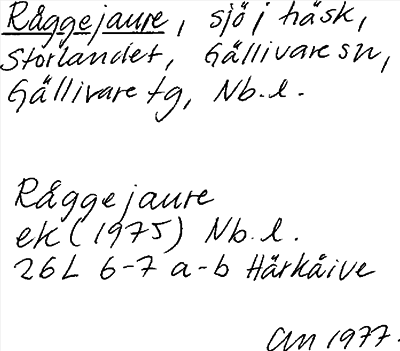 Råggejaure, sjö i häsk,
Storlandet, Gällivare sn,
Gällivare tg, Nb.l.
Råggejaure
ek (1975) Nb.l.
26L 6-7 a-b Härkåive
1977.